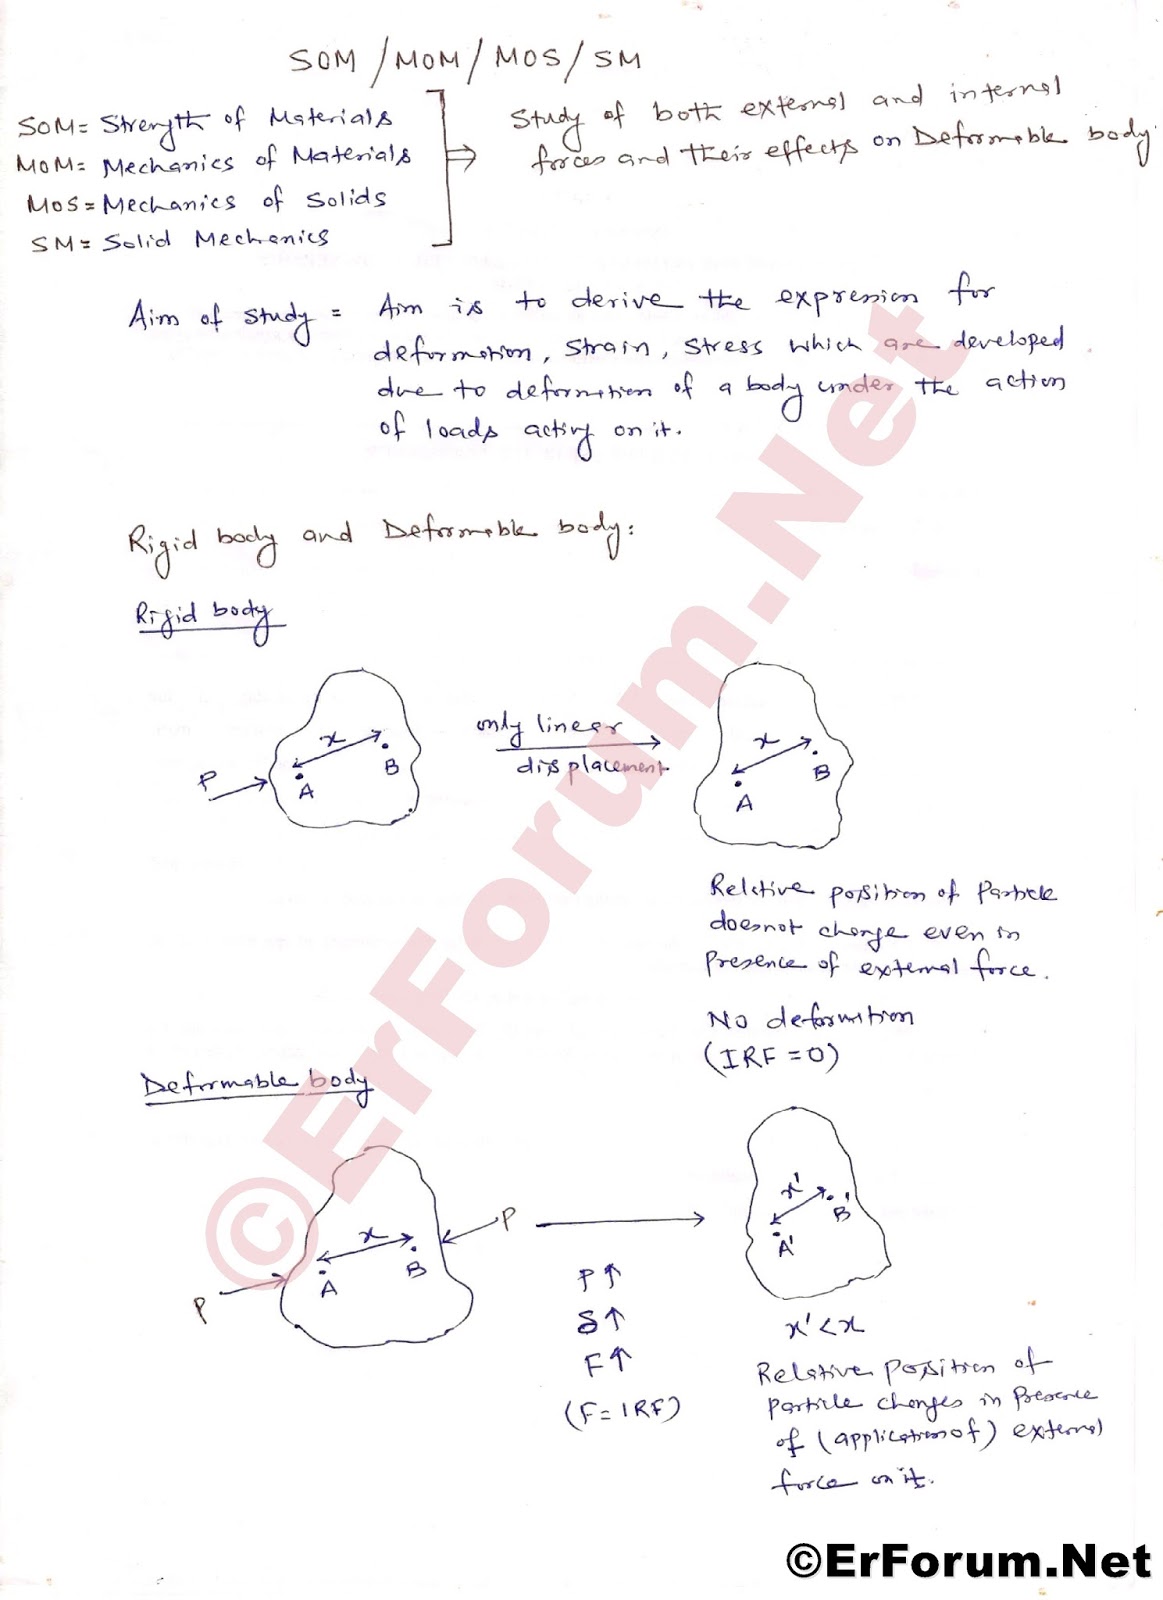 SOM / MOM / MOS / SM
SOM = Strength of Materials
MOM = Mechanics of Materials
MOS = Mechanics of Solids
SM = Solid Mechanics
⇒ Study of both external and internal
forces and their effects on Deformable body
Aim of study = Aim is to derive the expression for
deformation, strain, stress which are developed
due to deformation of a body under the action
of loads acting on it.
Rigid body and Deformable body:
Rigid body
P
x
A
B
only linear
displacement
x
A
B
Relative position of Particle
doesnot change even in
presence of external force.
No deformation
(IRF = 0)
Deformable body
P
x
A
B
P
P↑
δ↑
F↑
(F = IRF)
x'
A'
B'
x' < x
Relative position of
particle changes in presence
of (application of) external
force on it.
©ErForum.Net
©ErForum.Net